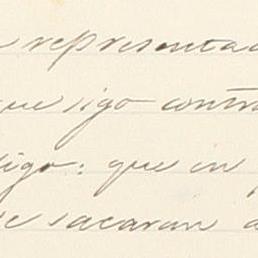 representad
que sigo contra
digo: que in
se sacaran a